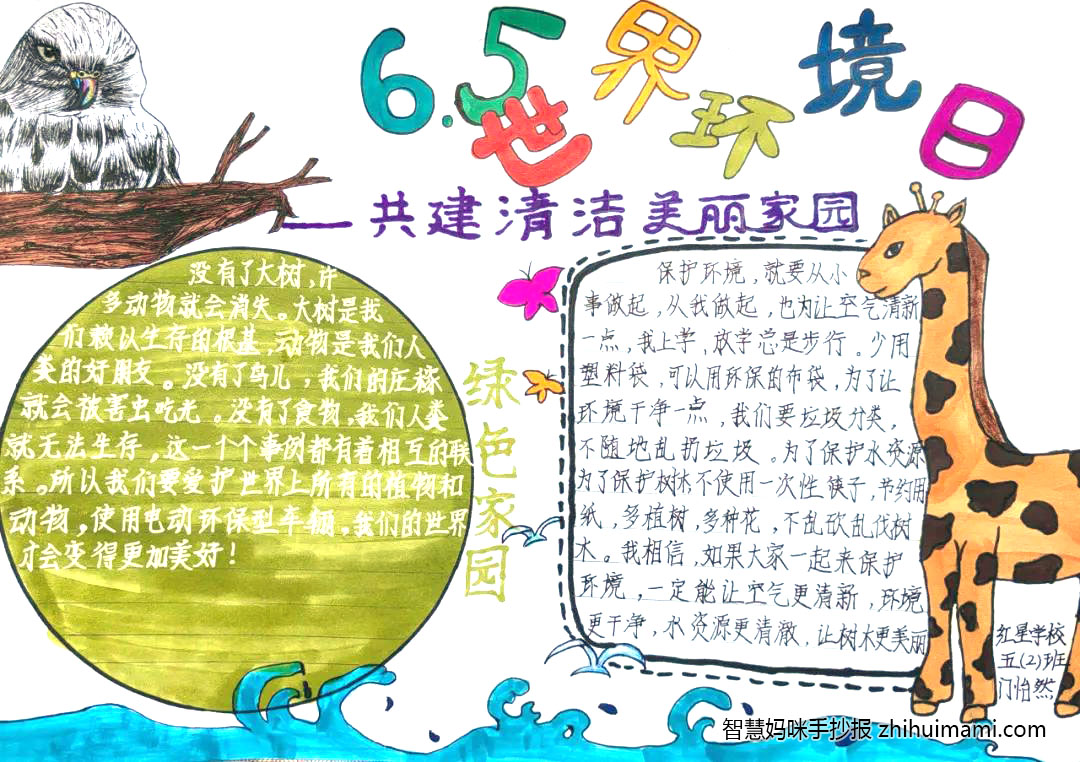 6.5世界环境日
——共建清洁美丽家园
没有了大树,许
多动物就会消失。大树是我
们赖以生存的根基,动物是我们人
类的好朋友。没有了鸟儿,我们的庄稼
就会被害虫吃光。没有了食物,我们人类
就无法生存,这一个个事例都有着相互的联
系。所以我们要爱护世界上所有的植物和
动物,使用电动环保型车辆,我们的世界
才会变得更加美好!
绿色家园
保护环境,就要从小
事做起,从我做起,也为让空气清新
一点,我上学,放学总是步行。少用
塑料袋,可以用环保的布袋,为了让
环境干净一点,我们要垃圾分类,
不随地乱扔垃圾。为了保护水资源
为了保护树木,不使用一次性筷子,节约用
纸,多植树,多种花,不乱砍乱伐树
木。我相信,如果大家一起来保护
环境,一定能让空气更清新,环境
更干净,水资源更清澈,让树木更美丽
红星学校
五(2)班
门怡然
智慧妈咪手抄报 zhihuimami.com